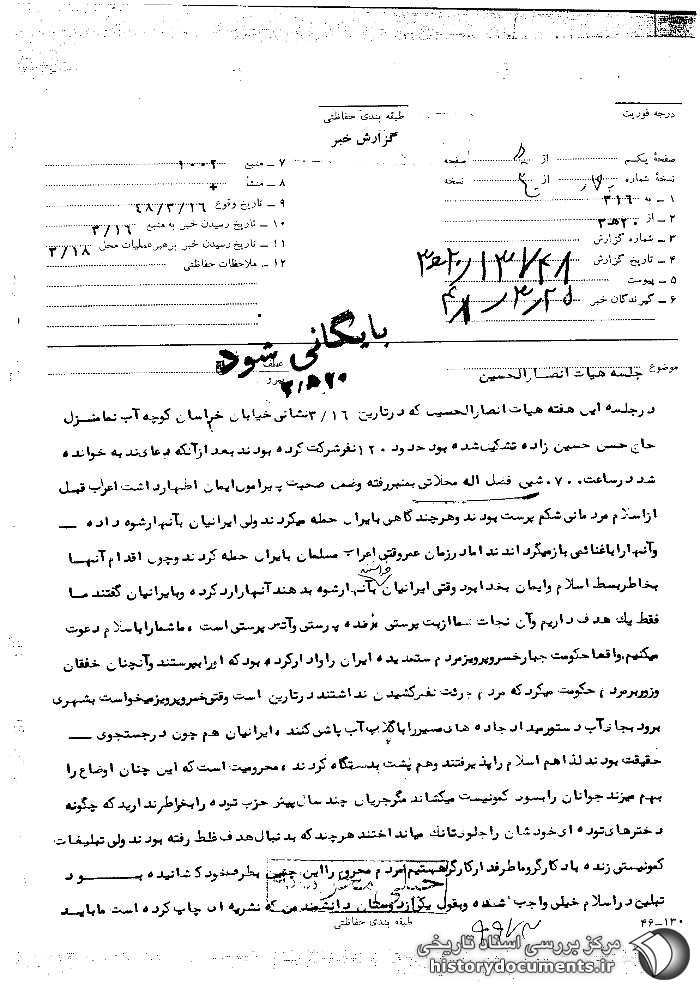 درجه فوریت
طبقه بندی حفاظتی
گزارش خبر
صفحهٔ یکم از صفحه
نسخهٔ شماره از نسخه
۱ ـ به ۳۱۶
۲ ـ از ۲۰هـ۳
۳ ـ شماره گزارش
۴ ـ تاریخ گزارش
۵ ـ پیوست
۶ ـ گیرندگان خبر
۷ ـ منبع ۱۰۰۲
۸ ـ منشأ
۹ ـ تاریخ وقوع ۴۸/۳/۱۶
۱۰ ـ تاریخ رسیدن خبر به منبع ۳/۱۶
۱۱ ـ تاریخ رسیدن خبر برهبر عملیات محل ۳/۱۸
۱۲ ـ ملاحظات حفاظتی
بایگانی شود
موضوع جلسه هیات انصارالحسین
در جلسه این هفته هیات انصارالحسین که در تاریخ ۳/۱۶ نشانی خیابان خراسان کوچه آب نما منزل
حاج حسن حسین زاده تشکیل شده بود حدود ۱۲۰ نفر شرکت کرده بودند بعد از آنکه دعای ندبه خوانده
شد در ساعت ۰۷۰۰ شیخ فضل اله محلاتی بمنبر رفته وضمن صحبت پیرامون ایمان اظهار داشت اعراب قبل
از اسلام مردمانی شکم پرست بودند وهر چند گاهی بایران حمله میکردند ولی ایرانیان بآنها رشوه داده
وآنها را با غنائمی باز میگرداندند اما در زمان عمر وقتی اعراب مسلمان بایران حمله کردند وچون اقدام آنها
بخاطر بسط اسلام وایمان بخدا بود وقتی ایرانیان خواستند بآنها رشوه بدهند آنها رد کرده وبایرانیان گفتند ما
فقط یك هدف داریم وآن نجات شما از بت پرستی مرده پرستی وآتش پرستی است ، ما شما را باسلام دعوت
میکنیم. واقعا حکومت جبار خسرو پرویز مردم ستمدیده ایران را وادار کرده بود که او را بپرستند وآنچنان خفقان
وزور بر مردم حکومت میکرد که مردم جرئت نفس کشیدن نداشتند در تاریخ است وقتی خسرو پرویز میخواست بشهری
برود بجای آب دستور میداد جاده های مسیر را با گلاب آب پاشی کنند ، ایرانیان هم چون در جستجوی
حقیقت بودند لذا هم اسلام را پذیرفتند وهم پشت بدستگاه کردند ، محرومیت است که این چنان اوضاع را
بهم میزند جوانان را بسوی کمونیست میکشاند مگر جریان چند سال پیش حزب توده را بخاطر ندارید که چگونه
دخترهای توده ای خودشان را جلوی تانك میانداختند هر چند که بدنبال هدف غلط رفته بودند ولی تبلیغات
کمونیستی زنده باد کارگر و ما طرفدار کارگر هستیم مردم محروم را این چنین بطرف خود کشانیده بود
تبلیغ در اسلام خیلی واجب شده وبقول یکی از دوستان دانشمند من که نشریه ای چاپ کرده است ما باید
طبقه بندی حفاظتی
۴۶-۱۳۰
مرکز بررسی اسناد تاریخی
historydocuments.ir